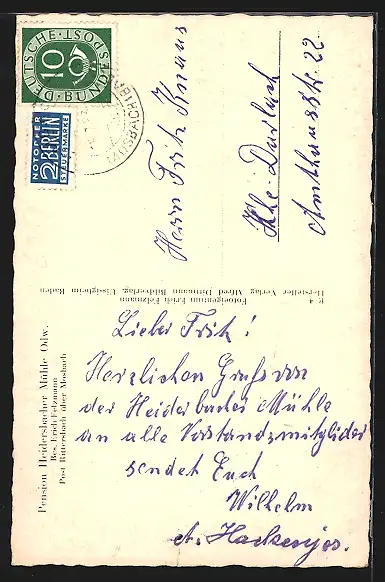 DEUTSCHE BUNDESPOST
10
NOTOPFER
2 BERLIN
STEUERMARKE
MOSBACH
Herrn Fritz Knaus
Khe-Durlach
Amthausstr. 22
Pension Heidersbacher Mühle Odw.
Bes. Erich Felzmann
Post Rittersbach über Mosbach
E 4
Fotoeigentum Erich Felzmann
Hersteller Verlag Alfred Dittmann Bildverlag, Uissigheim Baden
Lieber Fritz!
Herzlichen Gruß von
der Heidersbacher Mühle
an alle Vorstandsmitglieder
sendet Euch
Wilhelm
Hackenjos.